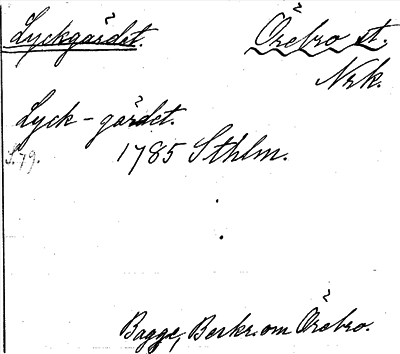 Lyckgärdet. Örebro st.
Nrk.
Lyck-gärdet.
S.79. 1785 Sthlm.
Bagge, Berkr. om Örebro.